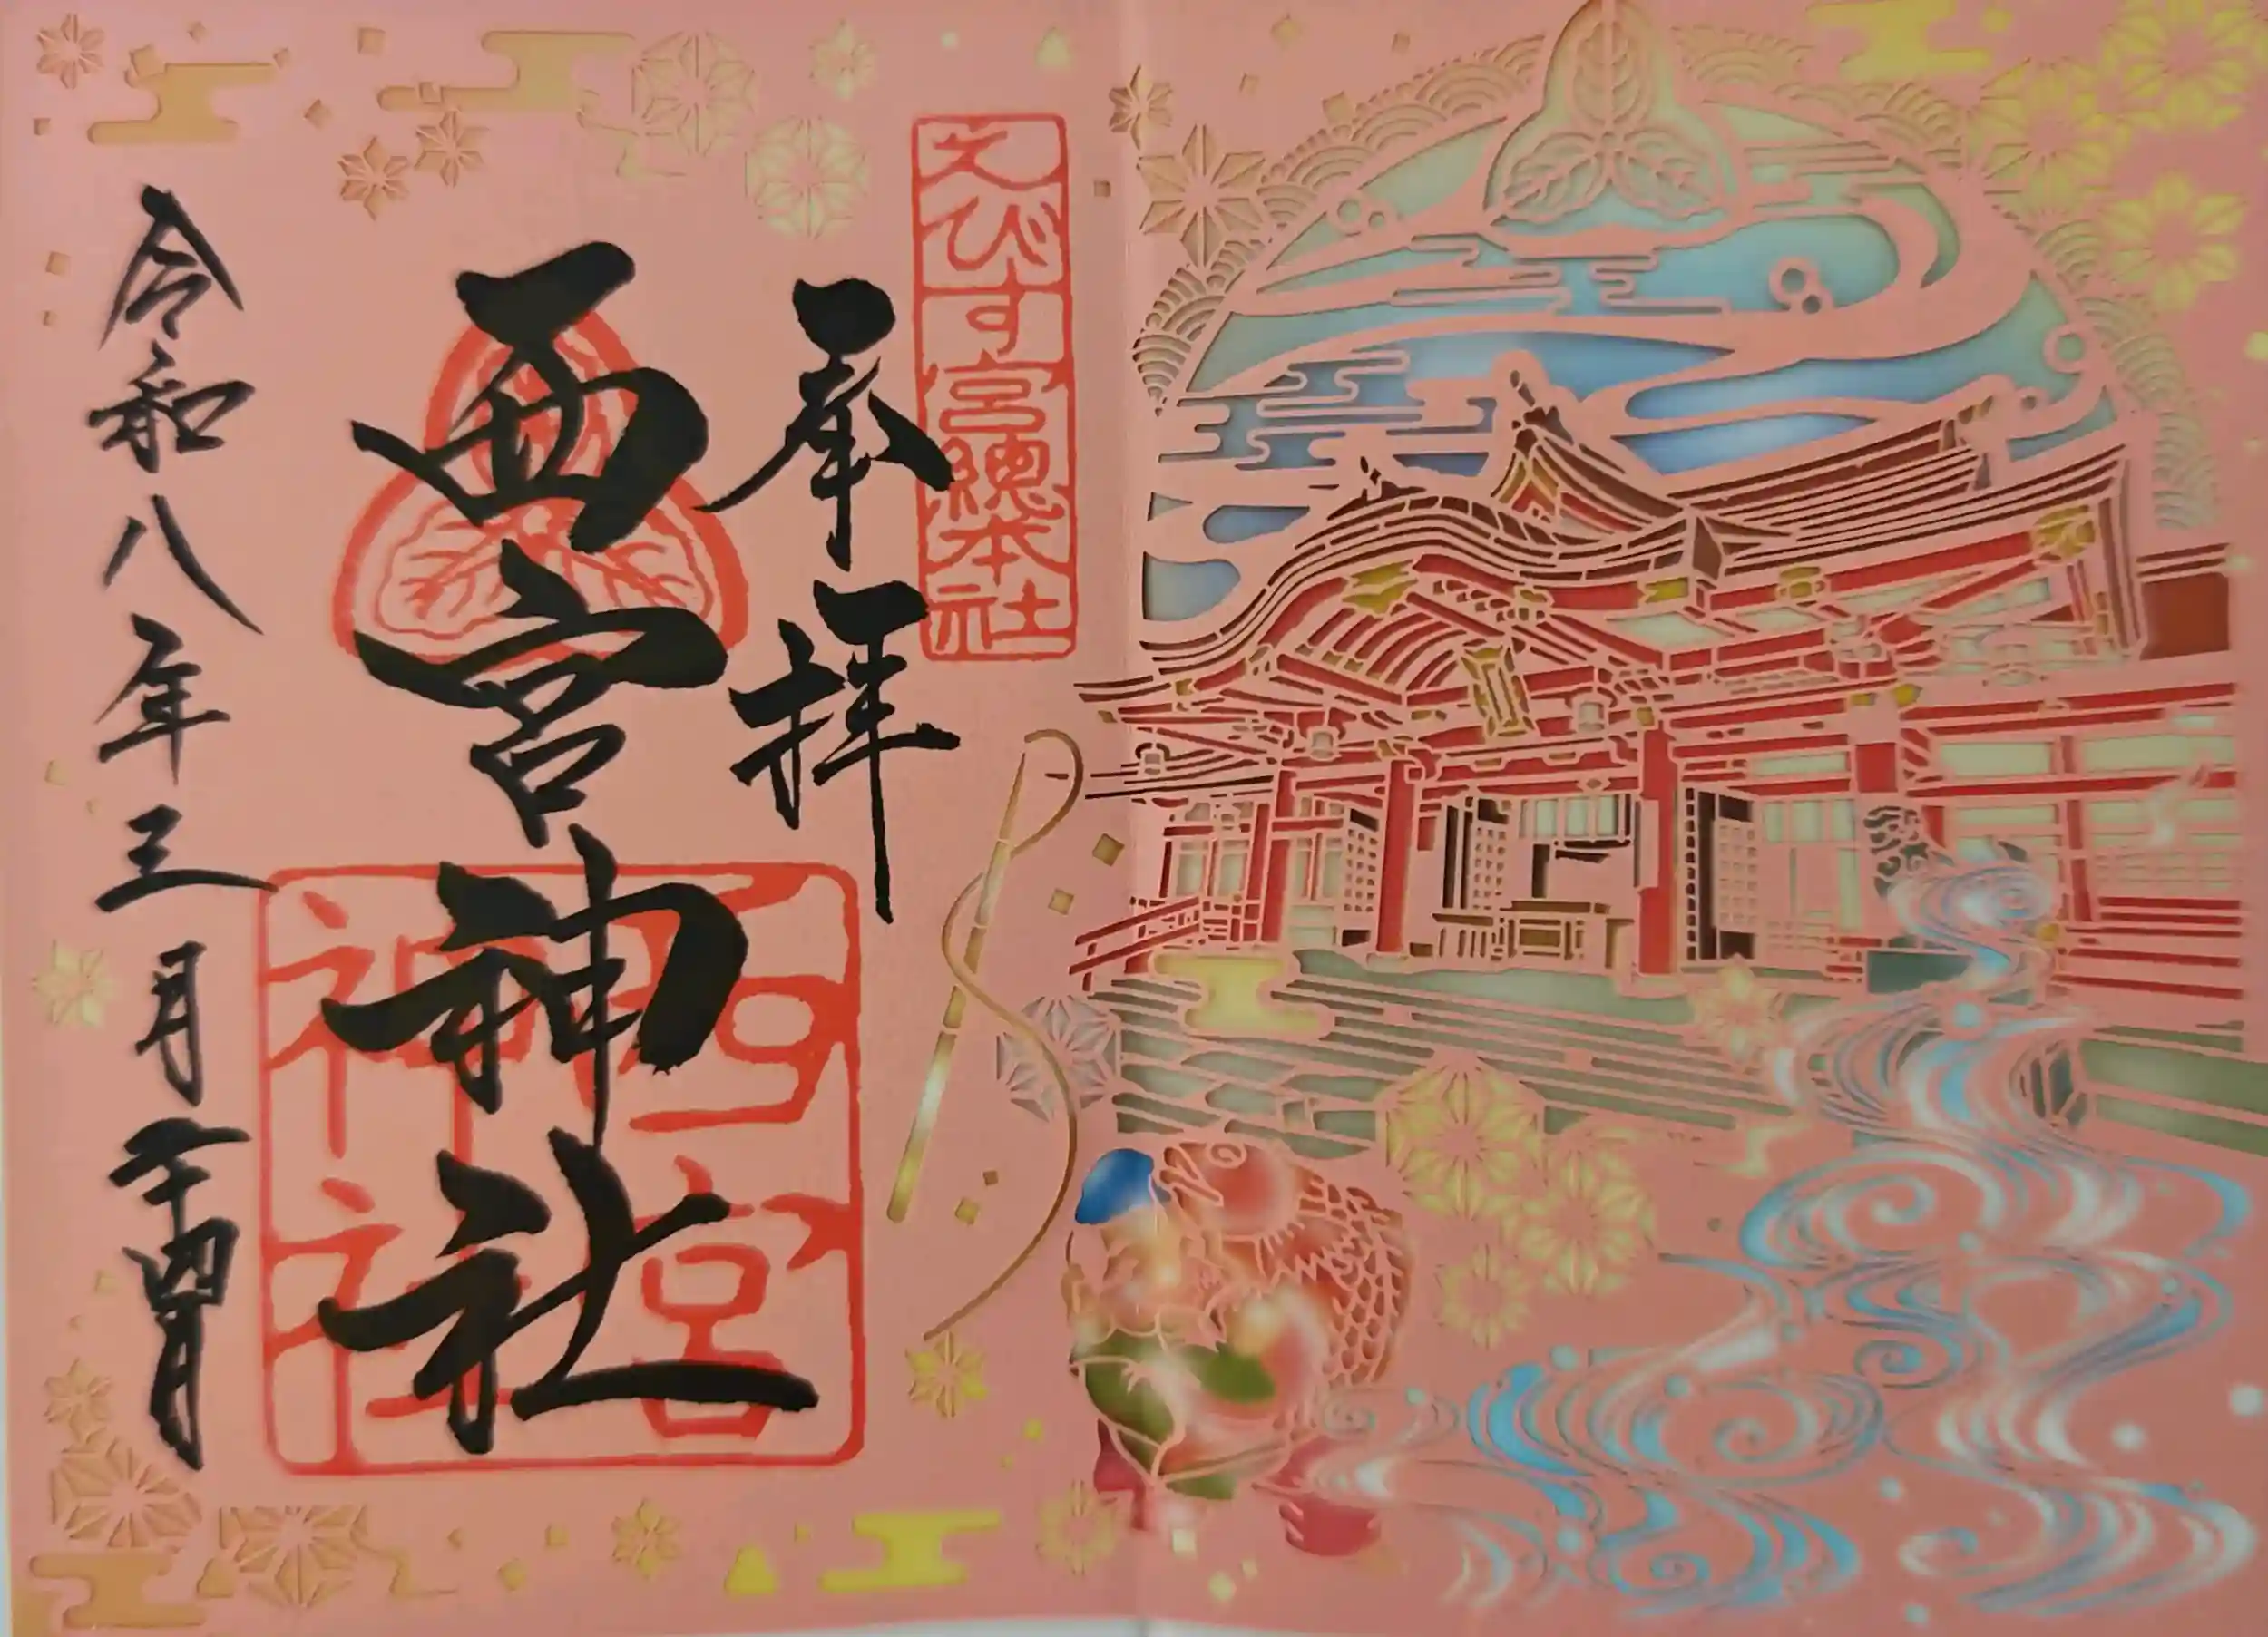 えびす宮總本社
奉拝
西宮神社
西宮神社
令和八年三月二十四日